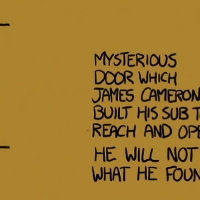 MYSTERIOUS
DOOR WHICH
JAMES CAMERON
BUILT HIS SUB T
REACH AND OPE
HE WILL NOT
WHAT HE FOUN